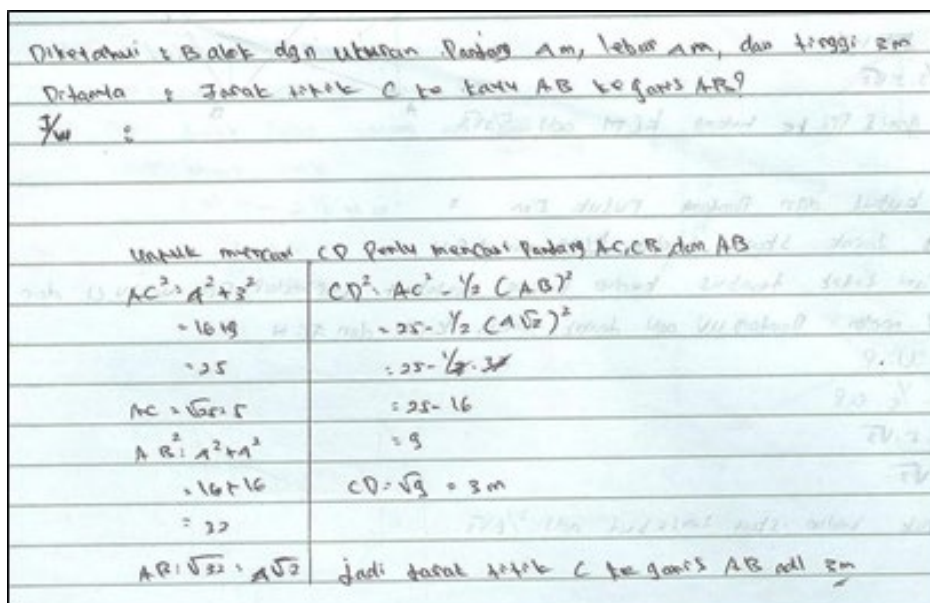 Diketahui : Balok dgn ukuran Panjang 4m, lebar 4m, dan tinggi 3m
Ditanya : Jarak titik C ke kayu AB ke garis AB?
Jw :
Untuk mencari CD Perlu mencari Panjang AC, CB, dan AB
AC² = 4² + 3²
= 16 + 9
= 25
AC = √25 = 5
AB² = 4² + 4²
= 16 + 16
= 32
AB = √32 = 4√2
CD² = AC² - 1/2 (AB)²
= 25 - 1/2 (4√2)²
= 25 - 1/2 . 32
= 25 - 16
= 9
CD = √9 = 3m
jadi jarak titik C ke garis AB adl 3m